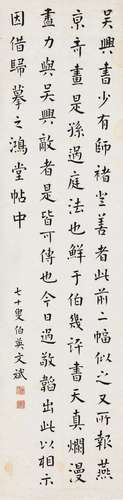 吳興書少有師褚登善者此前二幅似之又所報燕
京奇畫是孫過庭法也鮮于伯幾評書天真爛漫
盡力與吳興敵者是皆可傳也今日過敬韜出此以相示
因借歸摹之鴻堂帖中
七十叟伯英文斌